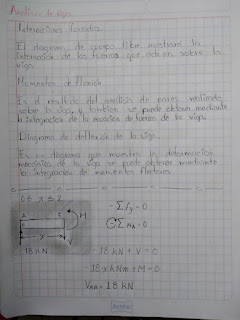 Análisis de viga
Reacciones fuerzas
El diagrama de cuerpo libre mostrara la
interacción de las fuerzas que actuan sobre la
viga.
Momentos de Flexión
Es el resultado del análisis de pares realizado
sobre la viga, y tambien se puede obtener mediante
la integracion de la reacción de fuerza de la viga.
Diagrama de deflexión de la viga.
Es un diagrama que muestra la deformación
mecánica de la viga se puede obtener mediante
la integración de momentos flectores.
0 ≤ x ≤ 2
A
M
x
V
18 KN
- Σ Fy = 0
Σ MA = 0
- 18 KN + V = 0
- 18·x KNm + M = 0
VAB = 18 KN